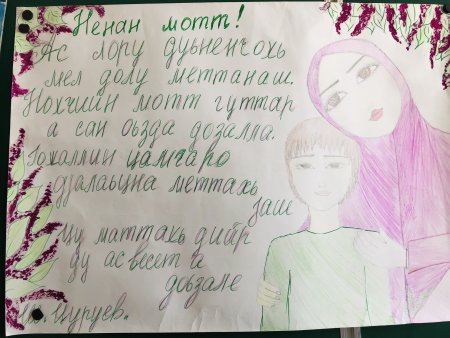 Ненан мотт!
Ас лору дуьненчохь
мел долу меттанаш.
Нохчийн мотт гуттар
а сан оьзда дозалла.
Гожаллин цамгаро
дјалаьцна меттахь
јаш
Цу маттахь дийр
ду ас весет а
доьзале
Ш. Цуруев.